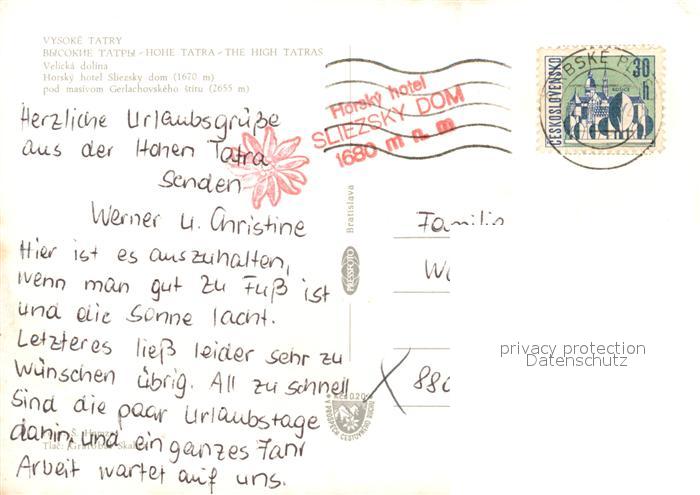 VYSOKÉ TATRY
ВЫСОКИЕ ТАТРЫ - HOHE TATRA - THE HIGH TATRAS
Velická dolina
Horský hotel Sliezsky dom (1670 m)
pod masívom Gerlachovského štítu (2655 m)
Horský hotel
SLIEZSKY DOM
1680 m n. m
ČESKOSLOVENSKO
30 h
KOŠICE
BSKÉ P
Herzliche Urlaubsgrüße
aus der Hohen Tatra
senden
Werner u. Christine
Hier ist es auszuhalten,
wenn man gut zu Fuß ist
und die Sonne lacht.
Letzteres ließ leider sehr zu
wünschen übrig. All zu schnell
sind die paar Urlaubstage
dahin, und ein ganzes Jahr
Arbeit wartet auf uns.
Bratislava
PRESSFOTO
Familie
We
880
privacy protection
Datenschutz
Kčs 0.20
V PROSPĚCH CESTOVNÉHO RUCHU
Tlač: